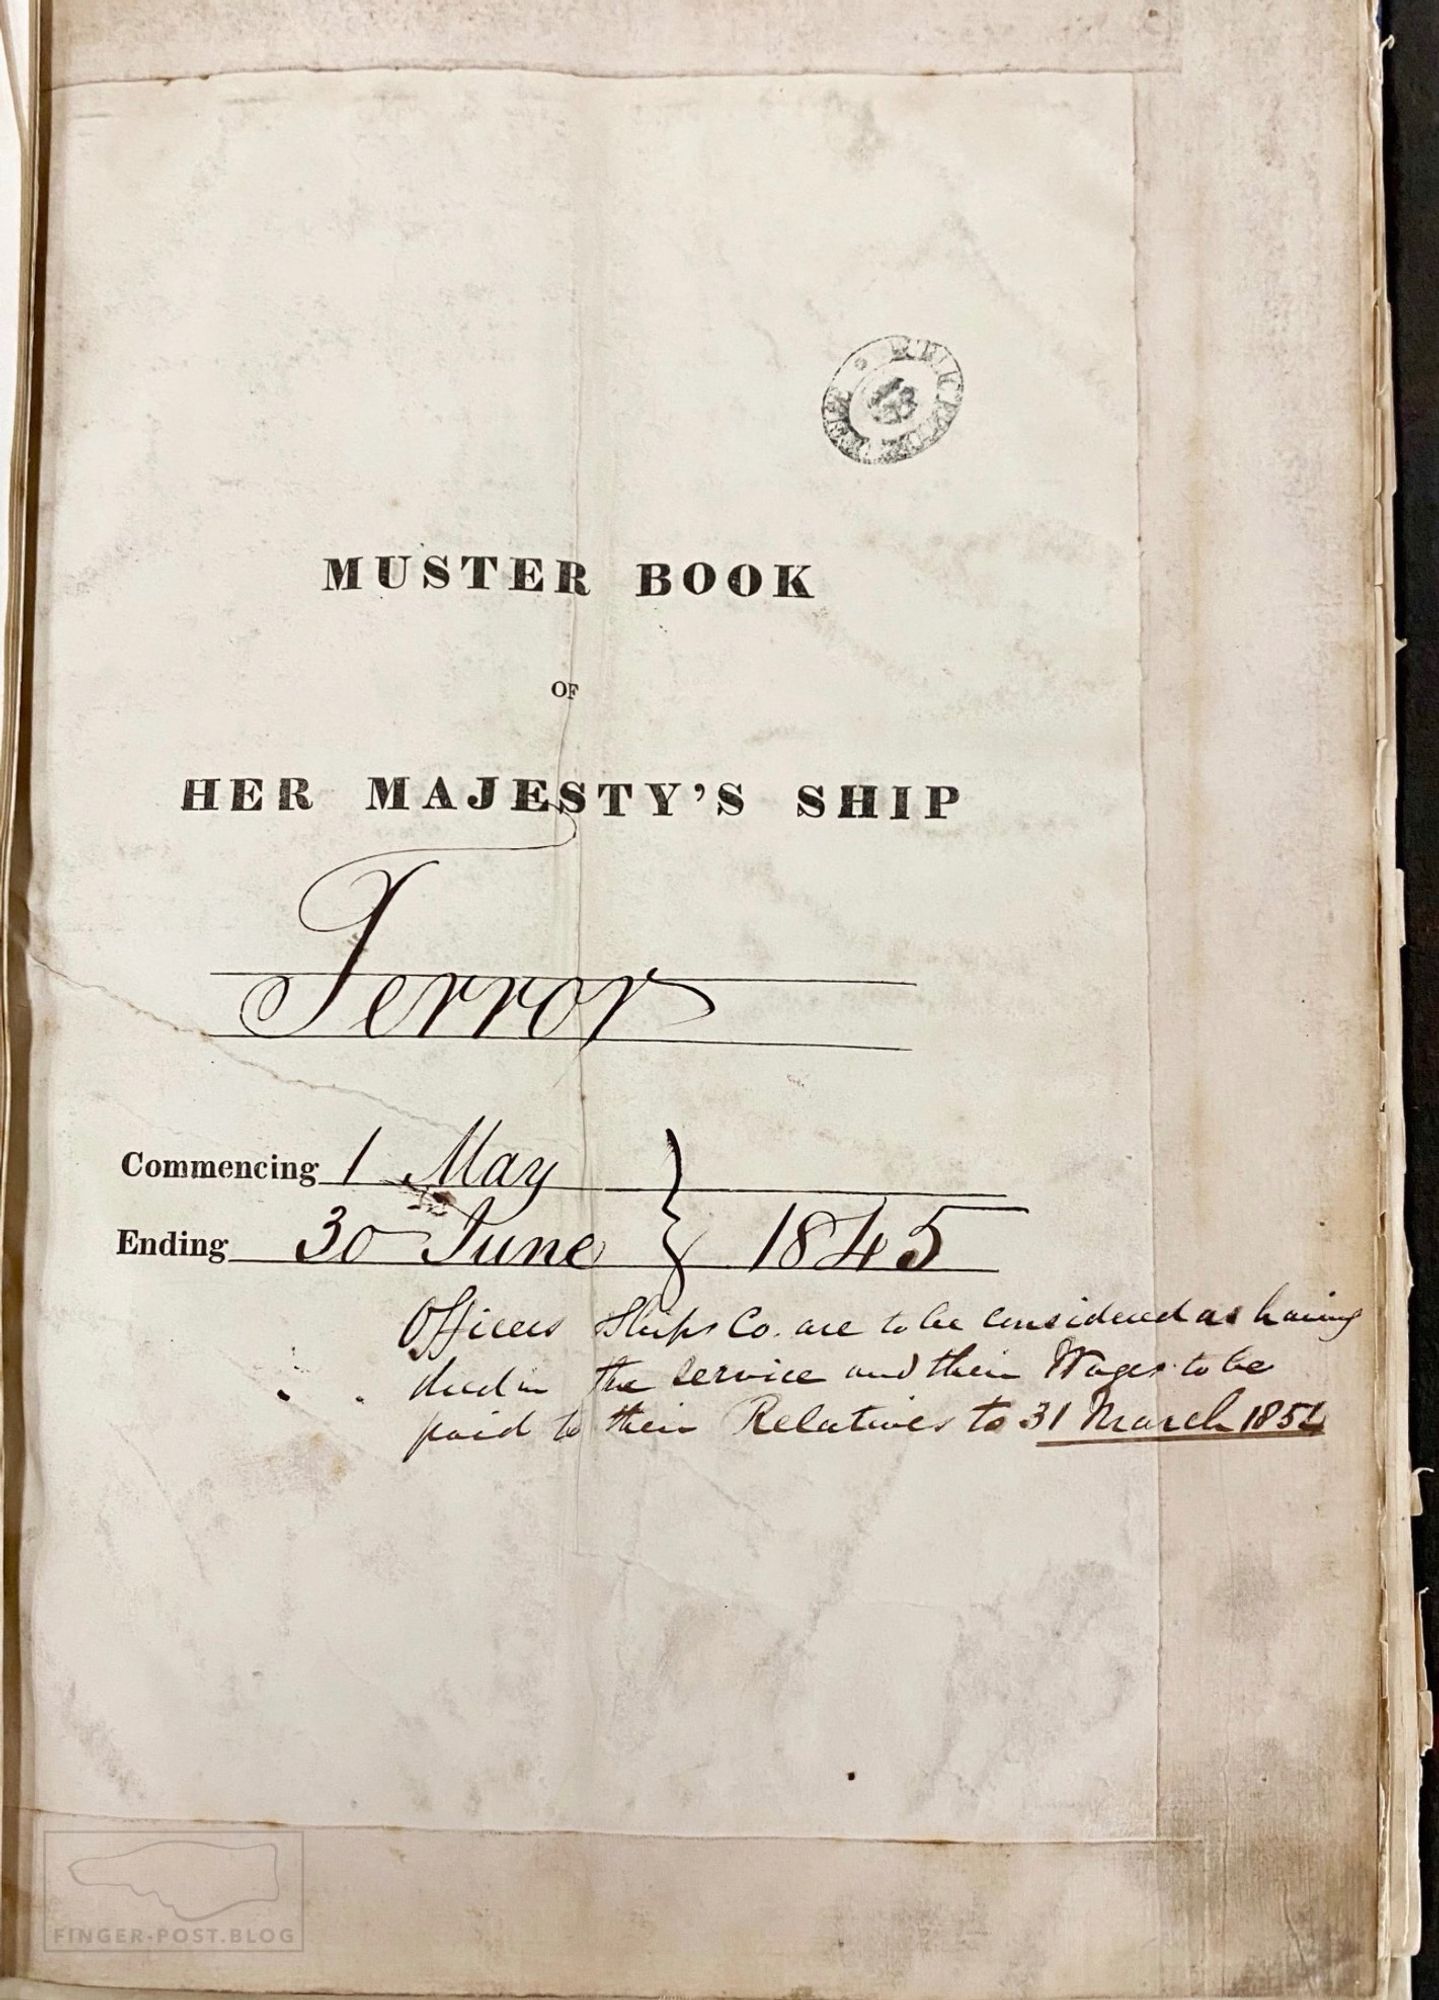 MUSTER BOOK
OF
HER MAJESTY'S SHIP
Terror
Commencing 1 May
Ending 30 June } 1845
Officers Ships Co. are to be considered as having
died in the service and their Wages to be
paid to their Relatives to 31 March 1854
FINGER-POST.BLOG